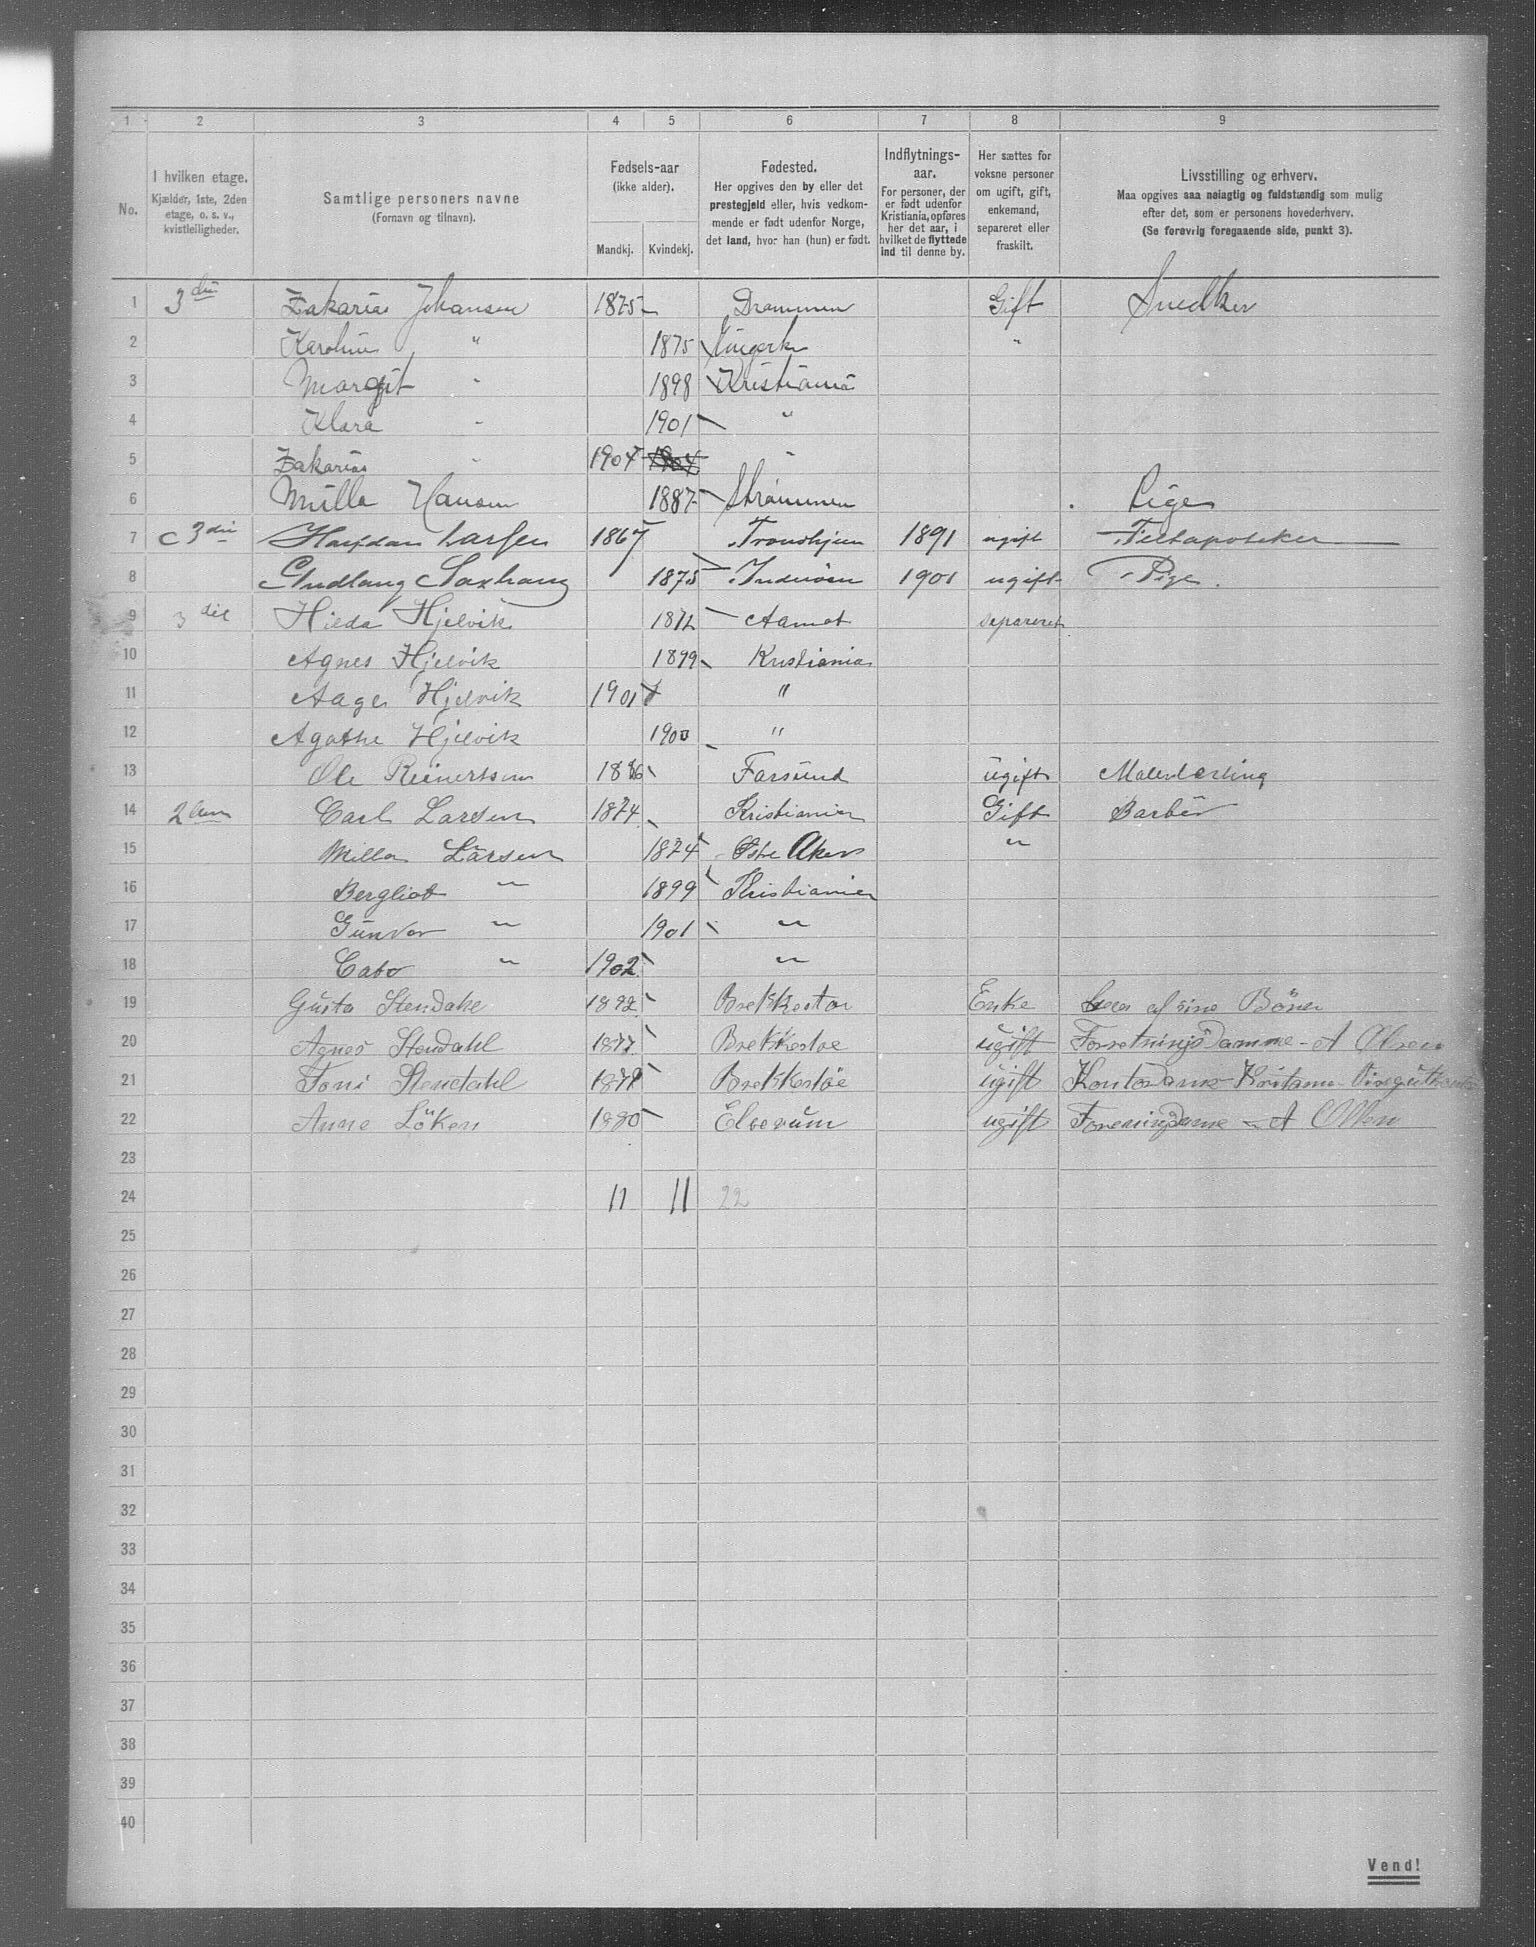 1 2 3 4 5 6 7 8 9
No.
I hvilken etage.
Kjælder, 1ste, 2den
etage, o. s. v.,
kvistleiligheder.
Samtlige personers navne
(Fornavn og tilnavn).
Fødsels-aar
(ikke alder).
Mandkj. Kvindekj.
Fødested.
Her opgives den by eller det
prestegjeld eller, hvis vedkom-
mende er født udenfor Norge,
det land, hvor han (hun) er født.
Indflytnings-
aar.
For personer, der
er født udenfor
Kristiania, opføres
her det aar, i
hvilket de flyttede
ind til denne by.
Her sættes for
voksne personer
om ugift, gift,
enkemand,
separeret eller
fraskilt.
Livsstilling og erhverv.
Maa opgives saa nøiagtig og fuldstændig som mulig
efter det, som er personens hovederhverv.
(Se forøvrig foregaaende side, punkt 3).
1 3die Zakarias Johansen 1875 Drammen Gift Snedker
2 Karoline " 1875 "
3 Margit " 1898 Kristiania
4 Klara " 1901 "
5 Zakarias " 1904 1904 "
6 Milla Hansen 1887 Strømmen Pige
7 3die Halfdan Larsen 1867 Trondhjem 1891 ugift
8 Gudlaug Saxhaug 1875 Inderøen 1901 ugift Pige
9 3die Hilda Hjelvik 1872 Aamot separeret
10 Agnes Hjelvik 1899 Kristiania
11 Aage Hjelvik 1901 "
12 Agathe Hjelvik 1900 "
13 Ole Reinertsen 1886 Farsund ugift Malerlærling
14 2den Carl Larsen 1874 Kristiania Gift Barber
15 Milla Larsen 1874 Østre Aker "
16 Bergliot " 1899 Kristiania
17 Gunvor " 1901 "
18 Cato " 1902 "
19 Gusta Stendahl Enke af sine Börn
20 Agnes Stendahl 1877 ugift ForretningsDamme - A Olsen
21 Toni Stendahl ugift KontorDame
22 Anne Löken 1880 Elverum ugift - A Olsen
23
24 11 11 22
25
26
27
28
29
30
31
32
33
34
35
36
37
38
39
40
Vend!